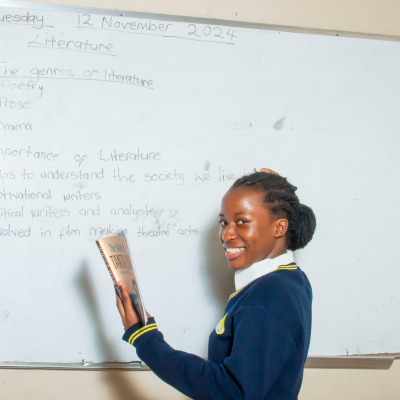 uesday 12 November 2024
Literature
The genres of literature
Poetry
Prose
Drama
mportance of Literature
lps to understand the society we live
otivational writers
itical writers and analyst
volved in film making theatre arts